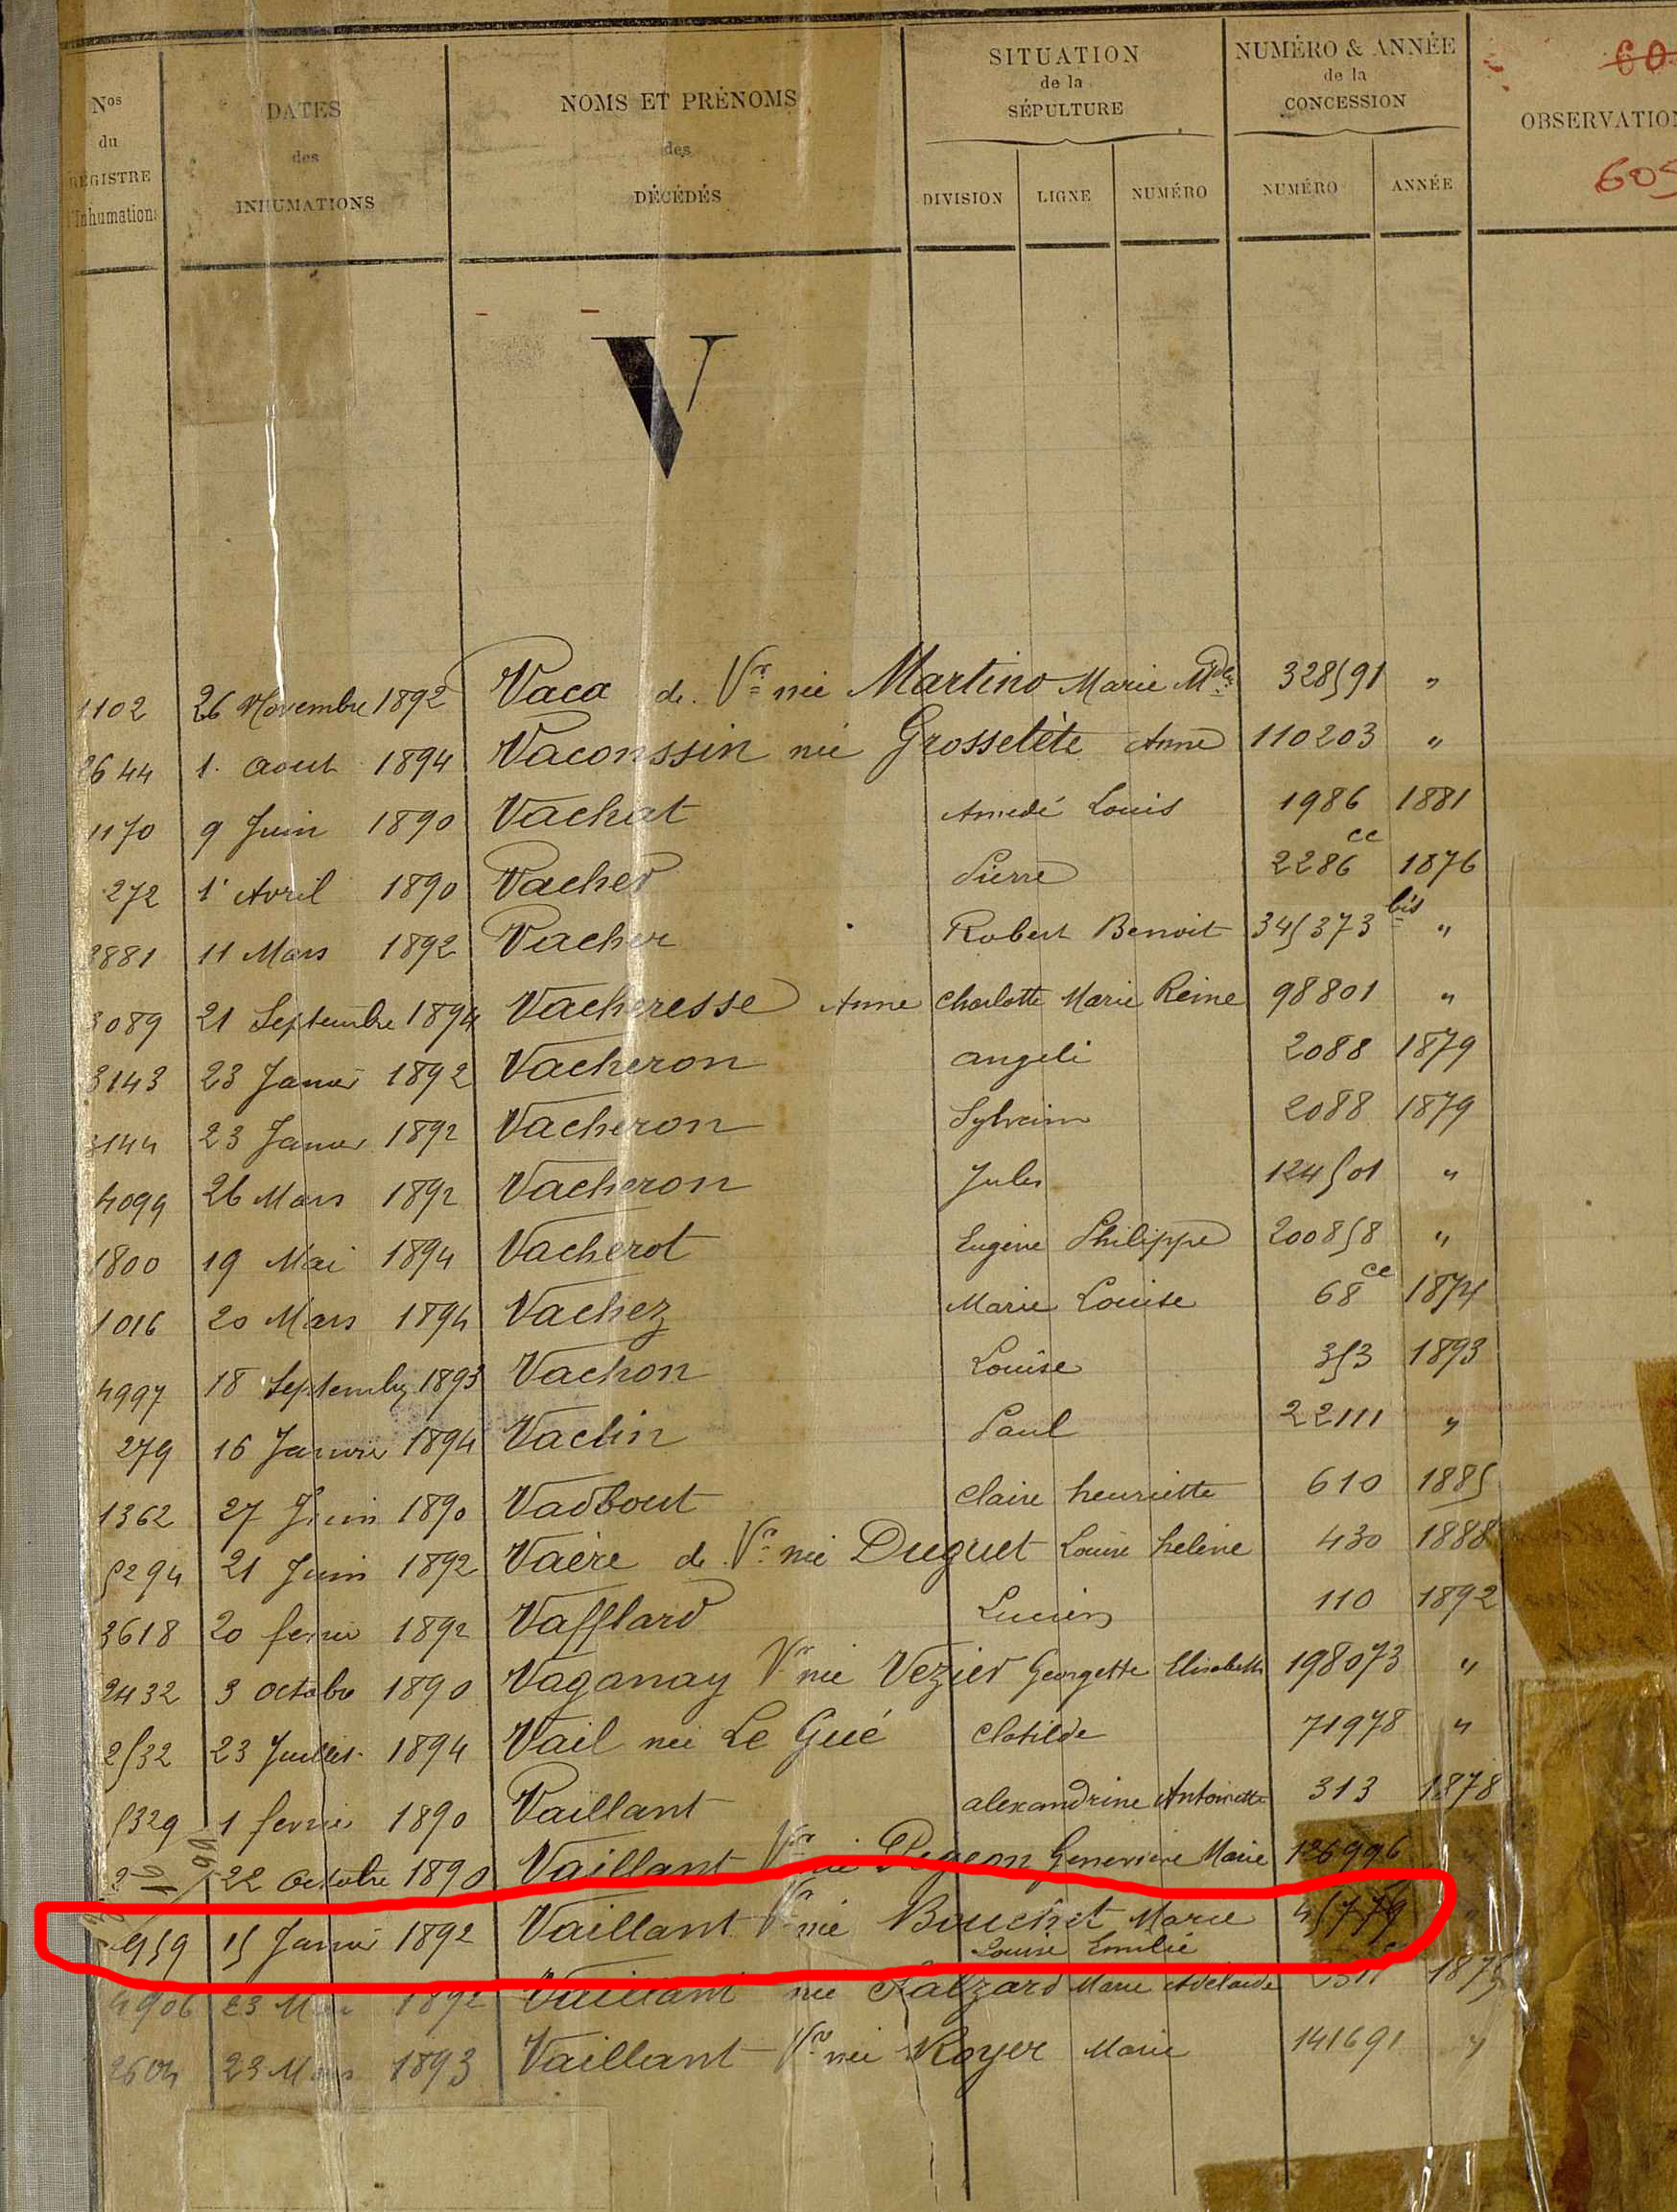 Nos du REGISTRE d'Inhumations
DATES des INHUMATIONS
NOMS ET PRÉNOMS des DÉCÉDÉS
SITUATION de la SÉPULTURE
DIVISION LIGNE NUMÉRO
NUMÉRO & ANNÉE de la CONCESSION
NUMÉRO ANNÉE
60
OBSERVATION
605
V
1102 26 Novembre 1892 Vaca de Vve née Martino Marie Mdle 328591 "
2644 1. aout 1894 Vaconssin née Grossetête Anne 110203 "
1170 9 Juin 1890 Vachat Amédé Louis 1986 1881
272 1' Avril 1890 Vacher Pierre 2286 cc 1876
3881 11 Mars 1892 Vacher Robert Benoit 345373 bis "
3089 21 Septembre 1894 Vacheresse Anne Charlotte Marie Reine 98801 "
3143 23 Janvier 1892 Vacheron angeli 2088 1879
3144 23 Janvier 1892 Vacheron Sylvain 2088 1879
4099 26 Mars 1892 Vacheron Jules 124501 "
1800 19 Mai 1894 Vacherot Eugène Philippe 200858 "
1016 20 Mars 1894 Vachez Marie Louise 68 cc 1874
4997 18 Septembre 1893 Vachon Louise 353 1893
279 16 Janvier 1894 Vaclin Paul 22111 "
1362 27 Juin 1890 Vadbout Claire henriette 610 1885
5294 21 Juin 1892 Vaère de Vve née Duguet Louise helène 430 1888
3618 20 fevrier 1892 Vafflard Lucien 110 1892
2432 3 octobre 1890 Vaganay Vve née Vezier Georgette Elisabeth 198073 "
2532 23 Juillet 1894 Vail née Le Gué Clotilde 71978 "
5329 1 fevrier 1890 Vaillant alexandrine Antoinette 313 1878
22 Octobre 1890 Vaillant Vve née Pigeon Geneviève Marie 126996 "
959 15 Janvier 1892 Vaillant Vve née Bouchet Marie 45779 "
Louise Emilie
4906 23 Mai 1892 Vaillant née Salzard Marie Adelaide 187
2604 23 Mars 1893 Vaillant Vve née Royer Marie 141691 "